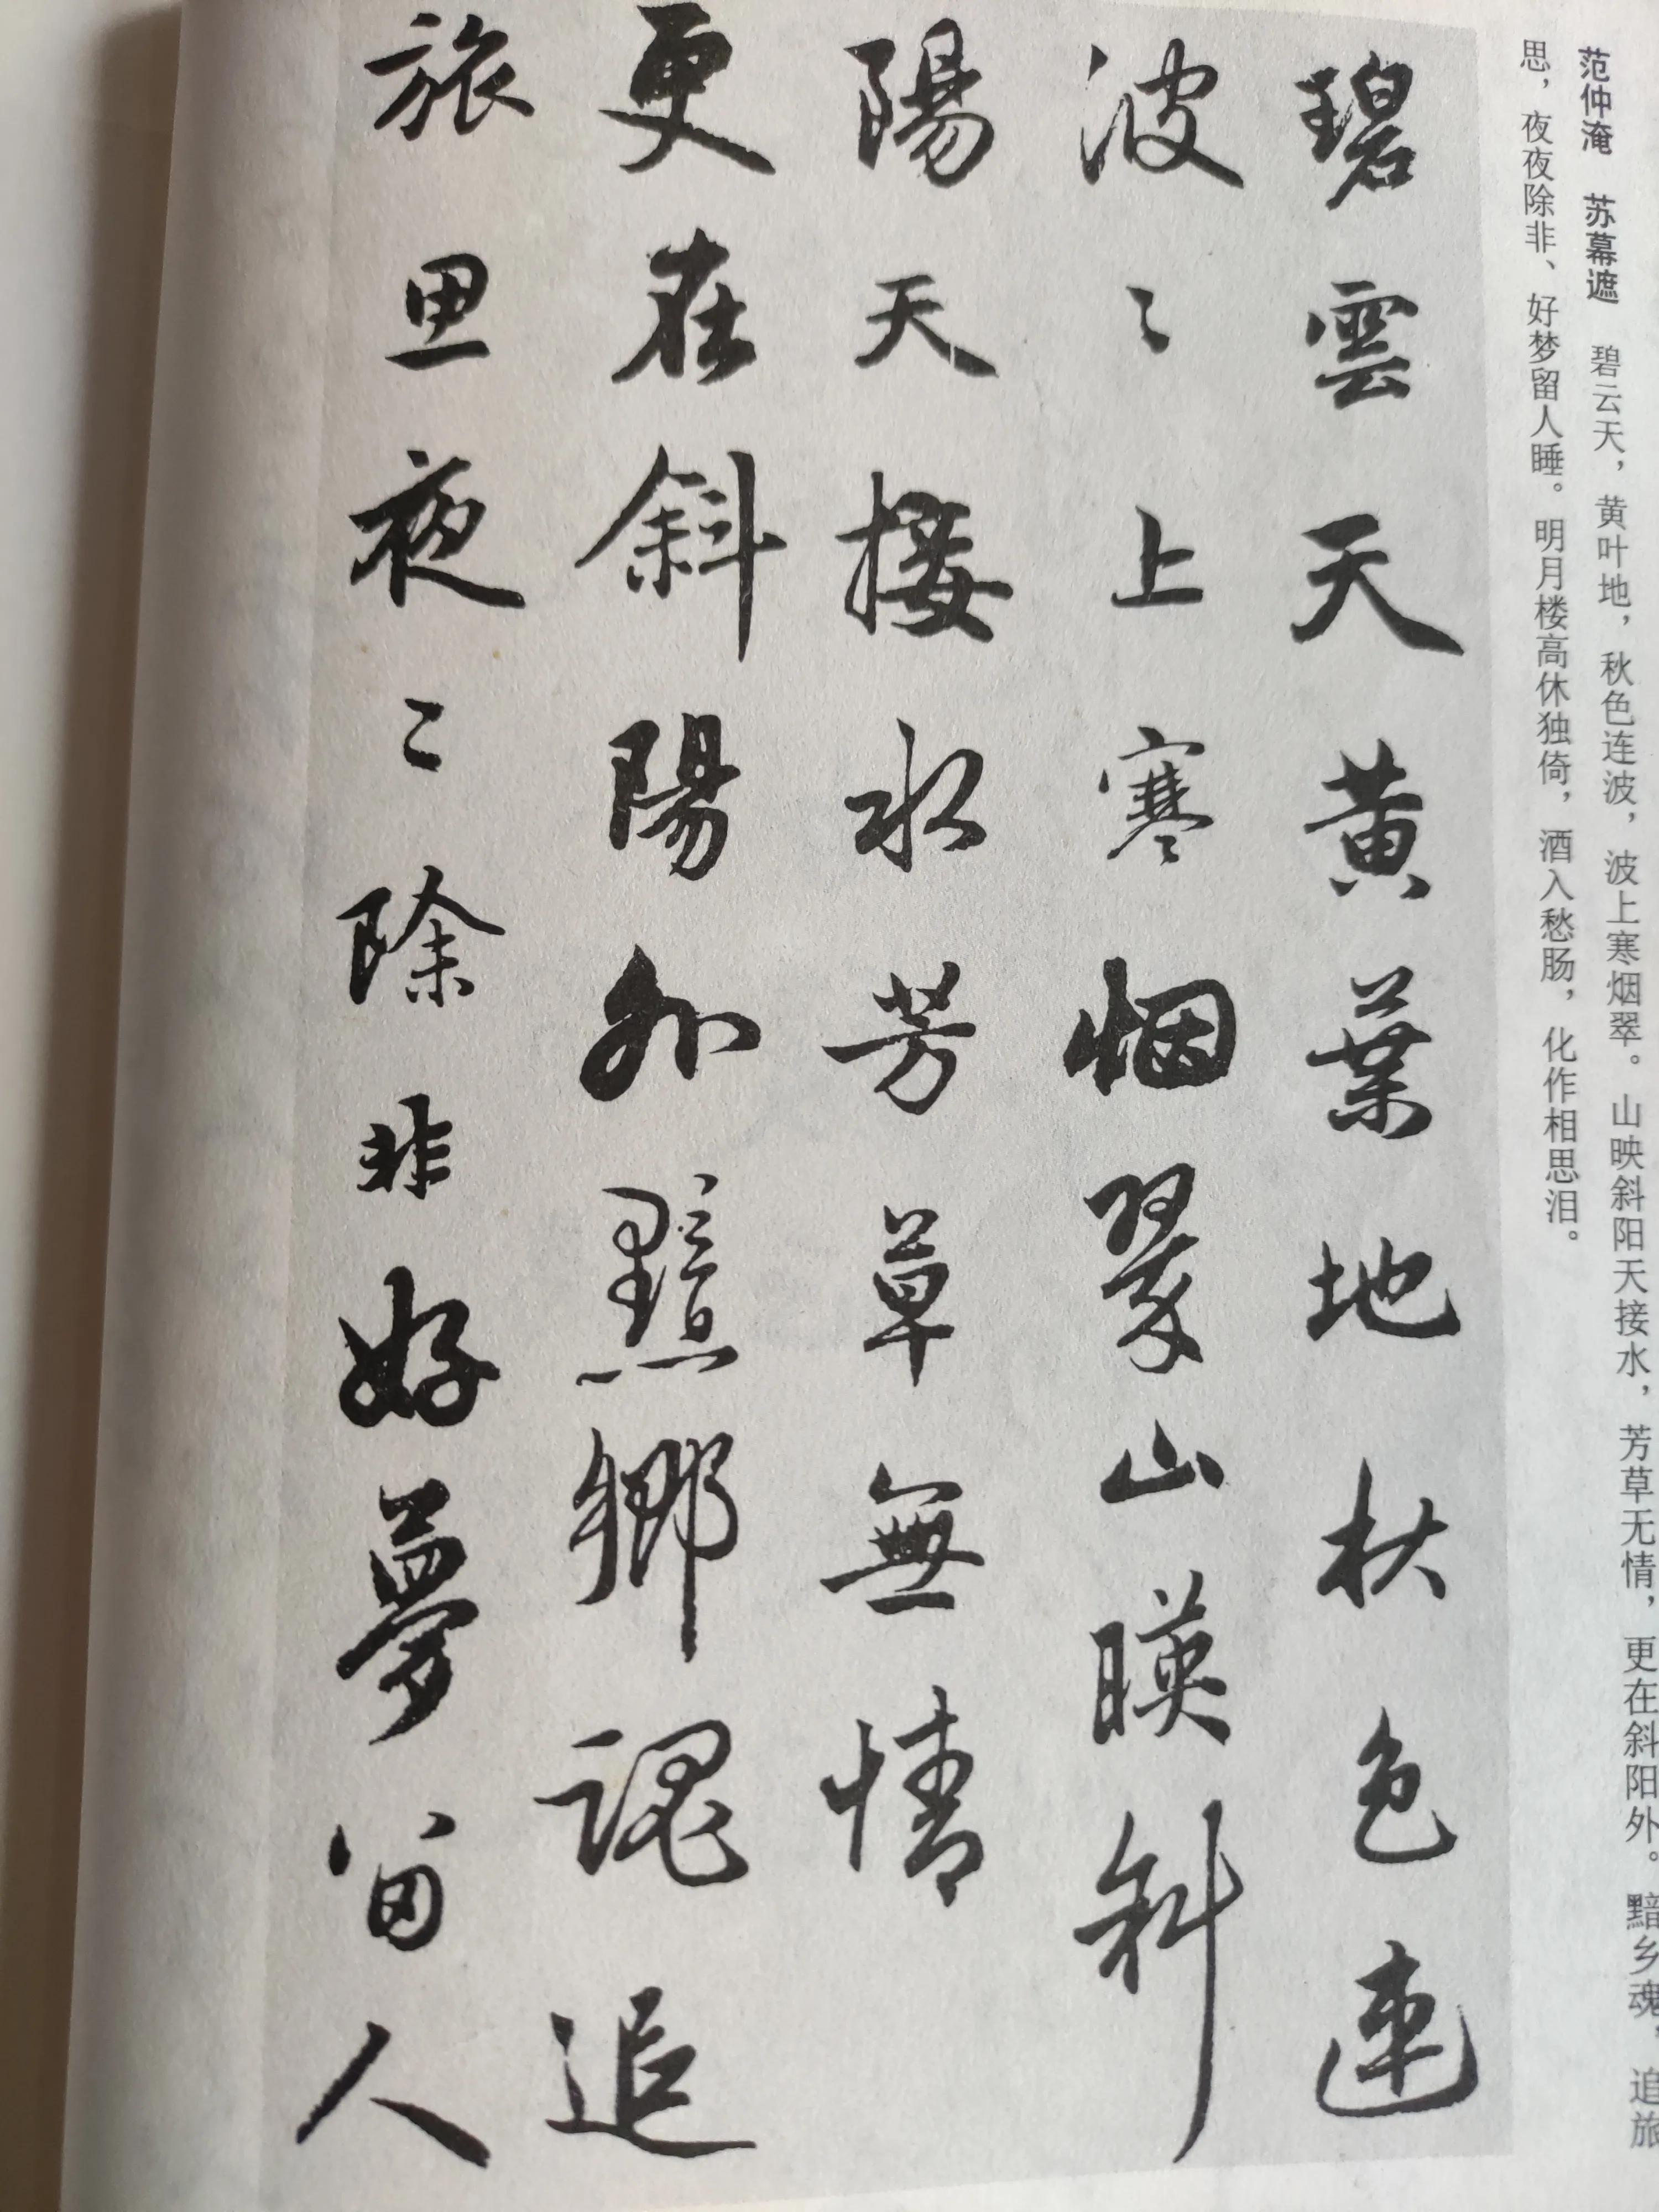 范仲淹　苏幕遮　碧云天，黄叶地，秋色连波，波上寒烟翠。山映斜阳天接水，芳草无情，更在斜阳外。黯乡魂，追旅
思，夜夜除非、好梦留人睡。明月楼高休独倚，酒入愁肠，化作相思泪。
碧雲天黄葉地秋色連
波〻上寒烟翠山暎斜
陽天接水芳草無情
更在斜陽外黯鄉魂追
旅思夜〻除非好夢留人